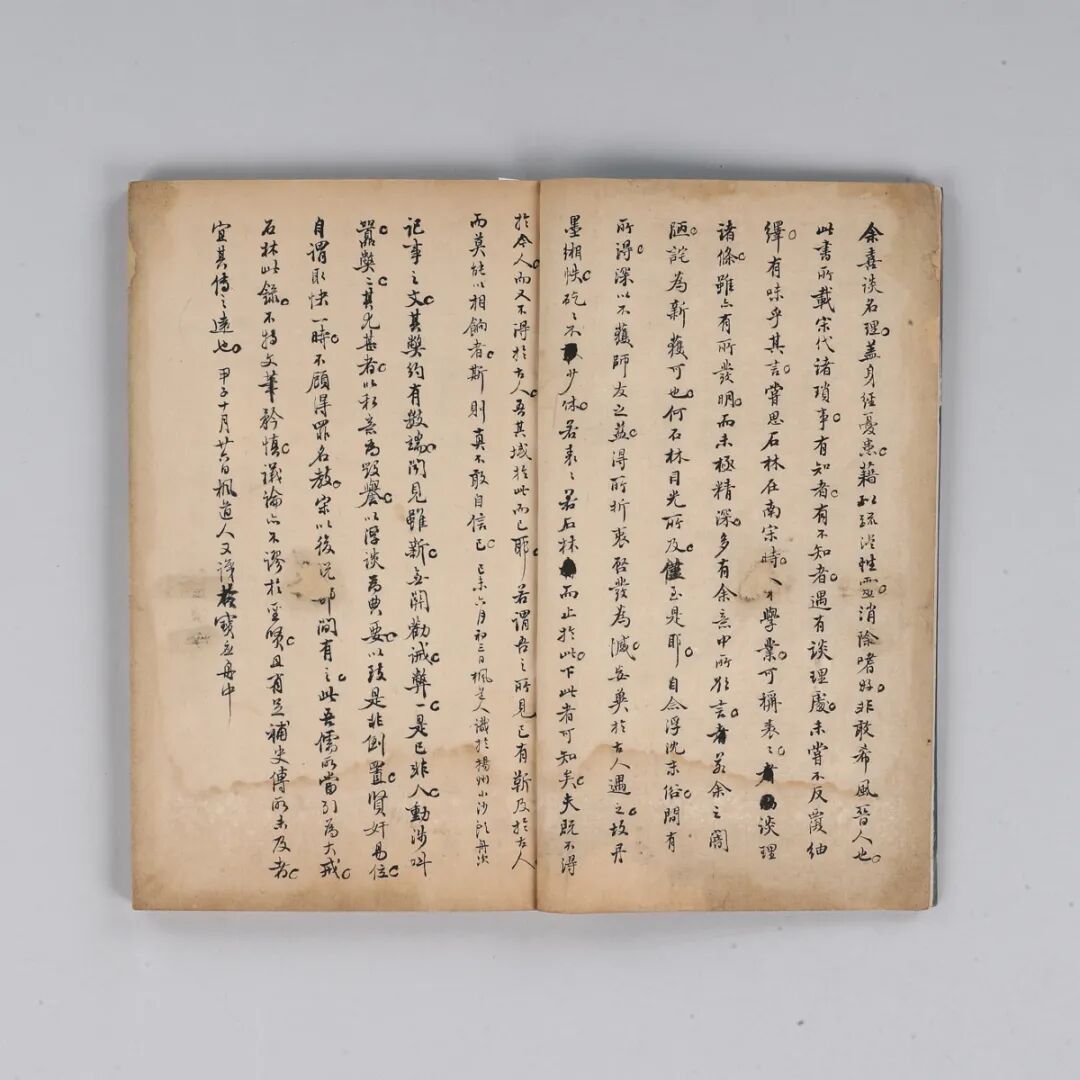 余喜談名理蓋身經憂患藉以疏瀹性靈消除嗜好非敢希風晉人也
此書所載宋代諸瑣事有知者有不知者遇有談理處未嘗不反覆紬
繹有味乎其言嘗思石林在南宋時人才學業可稱表表者談理
諸條雖亦有所發明而未極精深多有余意中所欲言者若余之闇
陋詫為新獲可也何石林目光所及僅至是耶自念浮沈末俗間有
所得深以不獲師友之益得所折衷啓發為憾無異於古人遇之故丹
墨緗帙矻矻不少休若表表若石林而止於此下此者可知矣夫既不得
於今人而又不得於古人吾其域於此而已耶若謂吾之所見已有靳及於古人
而莫能以相餉者斯則真不敢自信已己未六月初三日楓道人識於揚州小沙頭舟次
記事之文其弊約有數端聞見雖新無關勸誡弊一是已非人動涉叫
囂弊二其尤甚者以私意為毀譽以浮談為典要以致是非倒置賢奸易位
自謂取快一時不顧得罪名教宋以後説部間有之此吾儒所當引為大戒
石林此錄不特文筆矜慎議論亦不謬於聖賢且有足補史傳所未及者
宜其傳之遠也甲子十月廿六日楓道人又識於寶應舟中